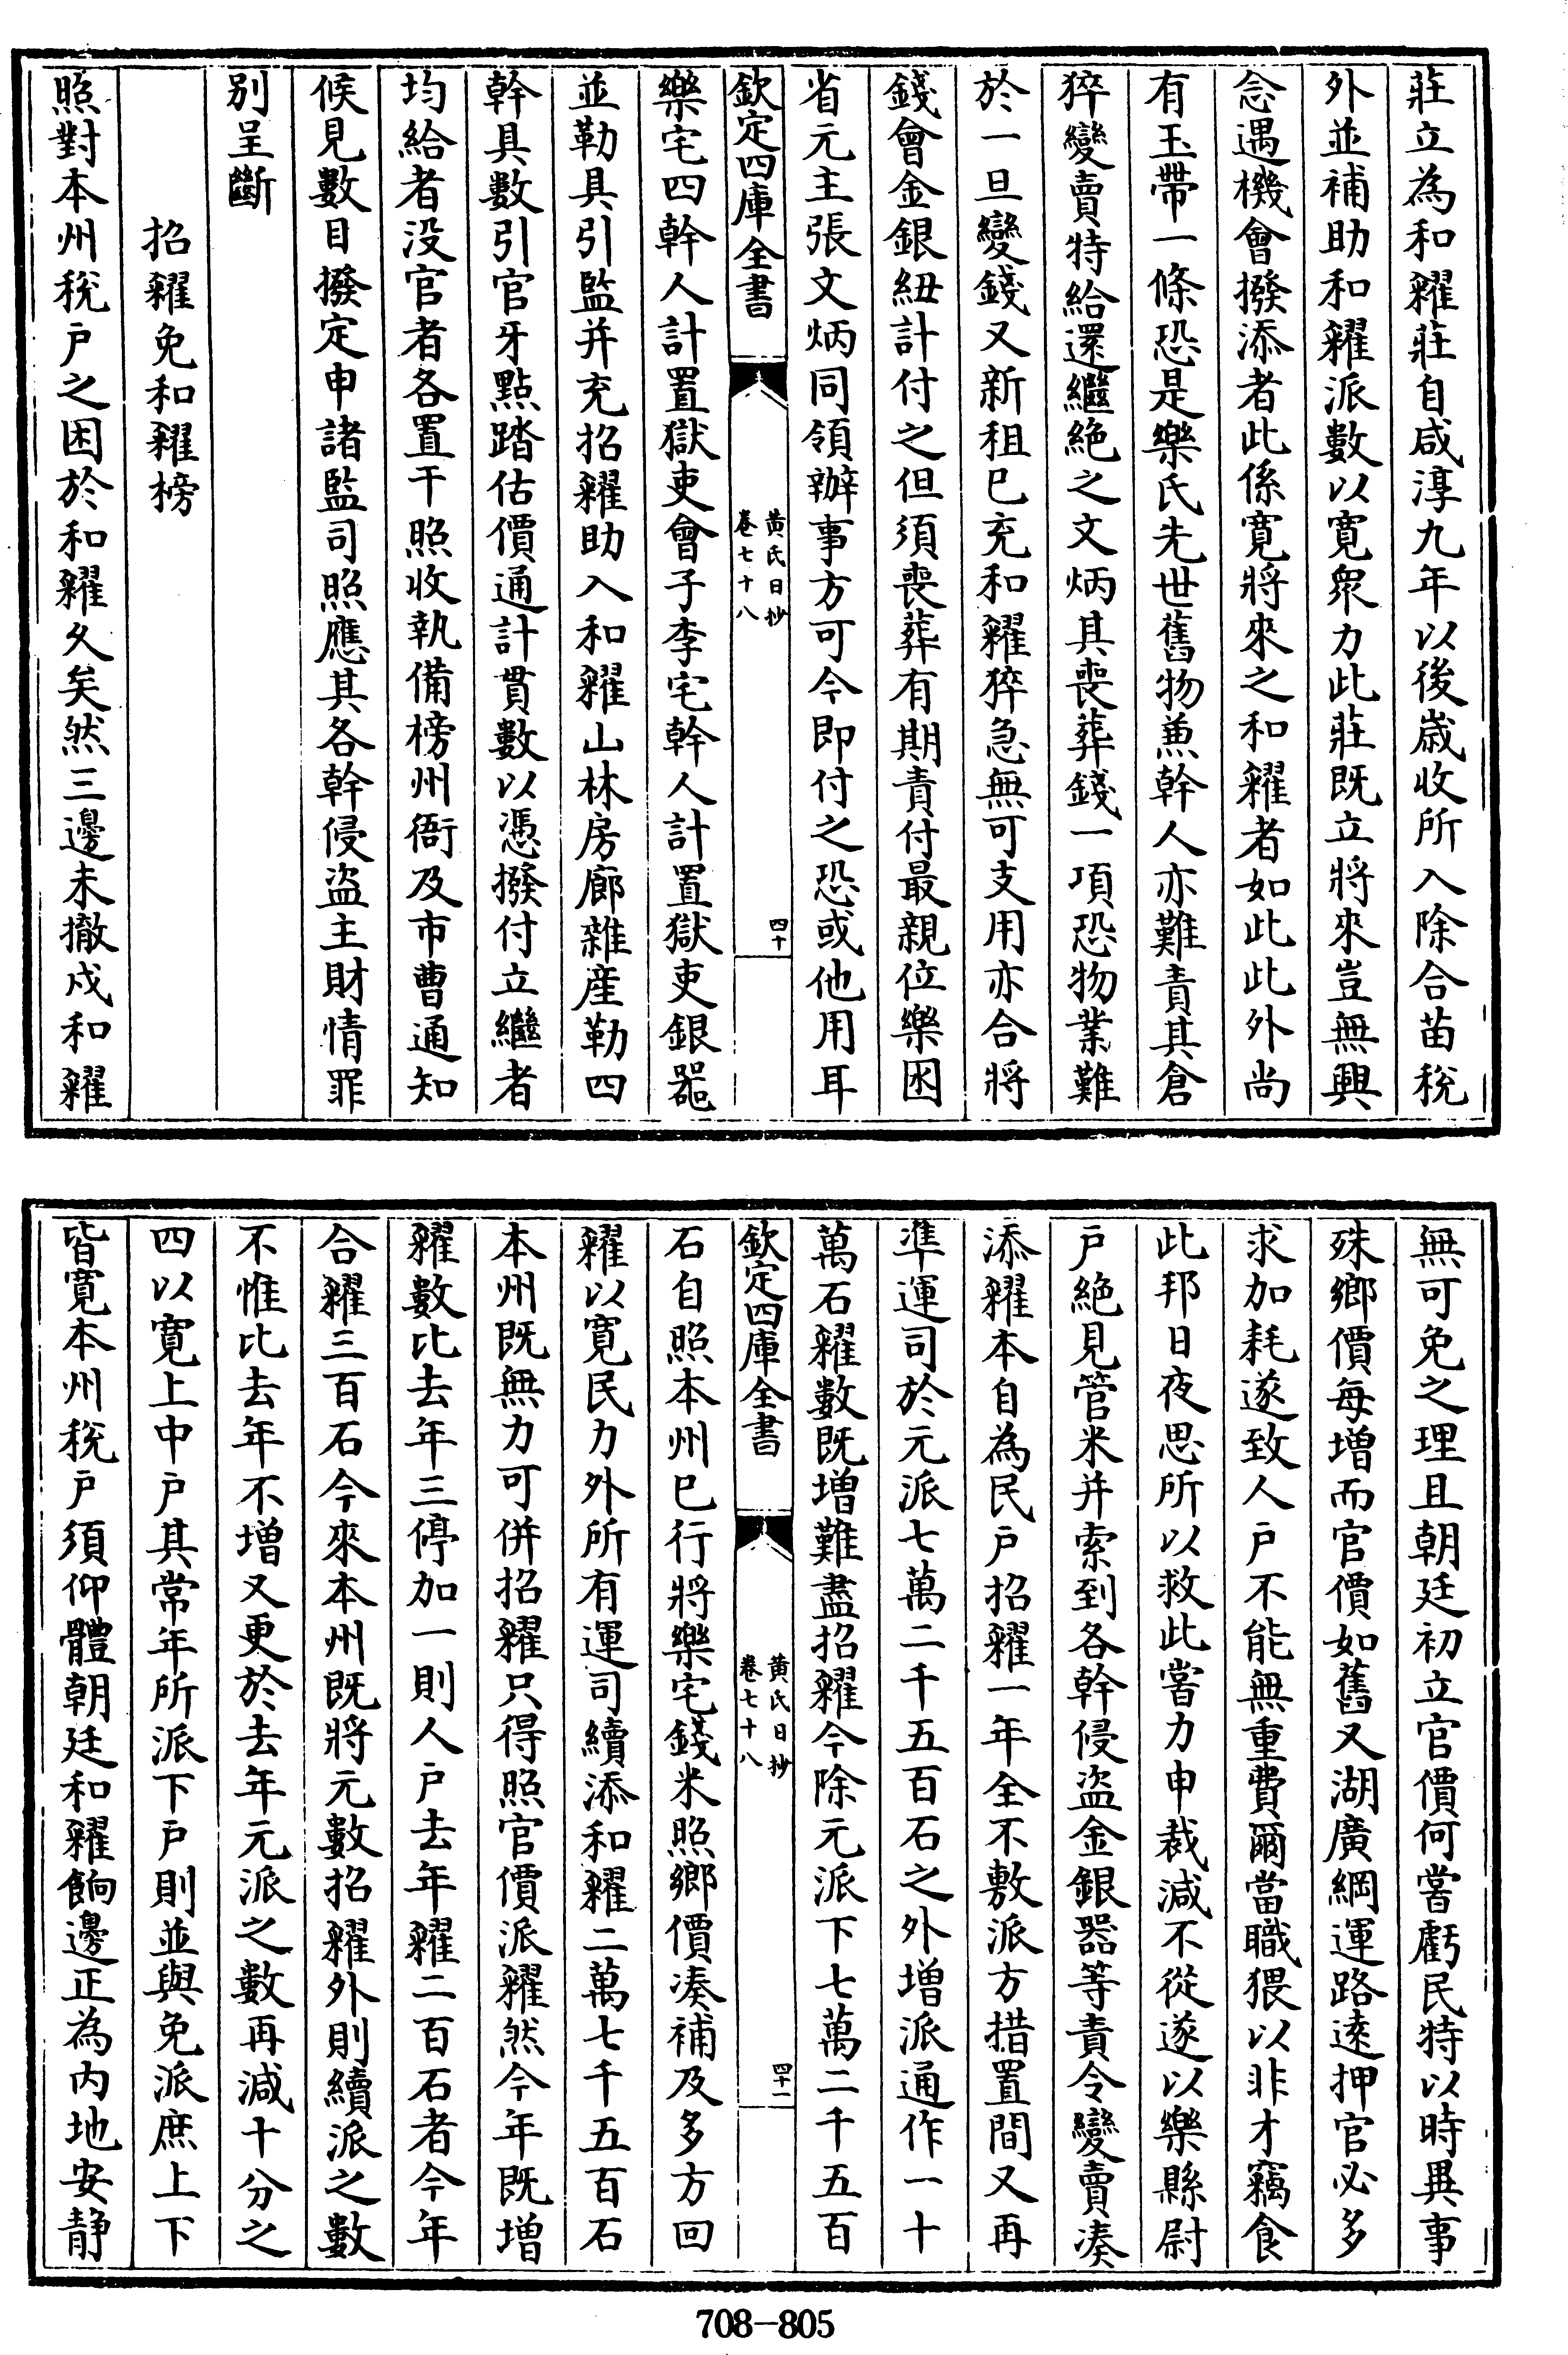 莊立為和糴莊自咸淳九年以後歲收所入除合苗稅
外並補助和糴派數以寛衆力此莊既立將來豈無興
念遇機會撥添者此係寛將來之和糴者如此此外尚
有玉帶一條恐是樂氏先世舊物兼幹人亦難責其倉
猝變賣特給還繼絶之文炳其喪葬錢一項恐物業難
於一旦變錢又新租已充和糴猝急無可支用亦合將
錢會金銀紐計付之但須喪葬有期責付最親位樂困
省元主張文炳同領辦事方可今即付之恐或他用耳
欽定四庫全書
黄氏日抄
卷七十八
四十
樂宅四幹人計置獄吏會子李宅幹人計置獄吏銀器
並勒具引監并充招糴助入和糴山林房廊雜産勒四
幹具數引官牙點踏估價通計貫數以憑撥付立繼者
均給者没官者各置干照收執備榜州衙及市曹通知
候見數目撥定申諸監司照應其各幹侵盜主財情罪
别呈斷
招糴免和糴榜
照對本州稅戶之困於和糴久矣然三邊未撤戍和糴
無可免之理且朝廷初立官價何嘗虧民特以時異事
殊鄉價毎增而官價如舊又湖廣綱運路逺押官必多
求加耗遂致人戶不能無重費爾當職猥以非才竊食
此邦日夜思所以救此嘗力申裁減不從遂以樂縣尉
戶絶見管米并索到各幹侵盜金銀器等責令變賣凑
添糴本自為民戶招糴一年全不敷派方措置間又再
準運司於元派七萬二千五百石之外增派通作一十
萬石糴數既增難盡招糴今除元派下七萬二千五百
欽定四庫全書
黄氏日抄
卷七十八
四十一
石自照本州已行將樂宅錢米照鄉價凑補及多方回
糴以寛民力外所有運司續添和糴二萬七千五百石
本州既無力可併招糴只得照官價派糴然今年既增
糴數比去年三停加一則人戶去年糴二百石者今年
合糴三百石今來本州既將元數招糴外則續派之數
不惟比去年不增又更於去年元派之數再減十分之
四以寛上中戶其常年所派下戶則並與免派庶上下
皆寛本州稅戶須仰體朝廷和糴餉邊正為内地安静
708—805